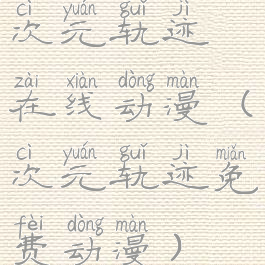 cì yuán guǐ jì
次元轨迹
zài xiàn dòng màn
在线动漫（
cì yuán guǐ jì miǎn
次元轨迹免
fèi dòng màn
费动漫）